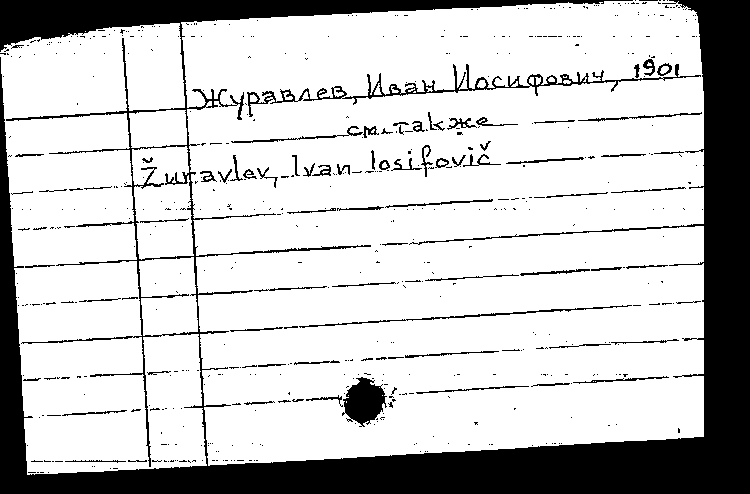 Журавлев, Иван Иосифович, 1901
см. также
Žuravlev, Ivan Iosifovič